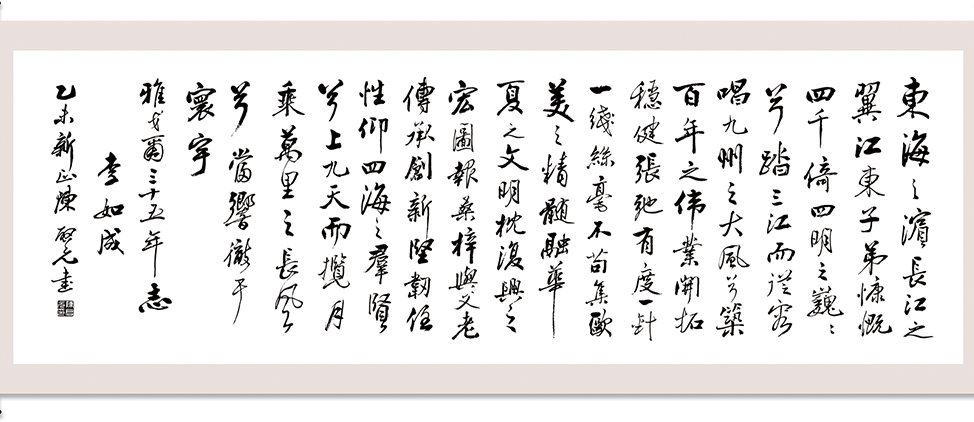 東海之濱長江之
翼江東子弟慷慨
四千倚四明之巍々
兮踏三江而從容
唱九州之大風兮築
百年之伟業開拓
穩健張弛有度一針
一綫絲毫不苟集歐
美之精髓融華
夏之文明枕復興之
宏圖報桑梓與父老
傳承創新堅韌任
性仰四海之羣賢
兮上九天而攬月
乘萬里之長風
兮當響徹于
寰宇
雅戈爾三十五年志
李如成
乙未新正陳啟元書